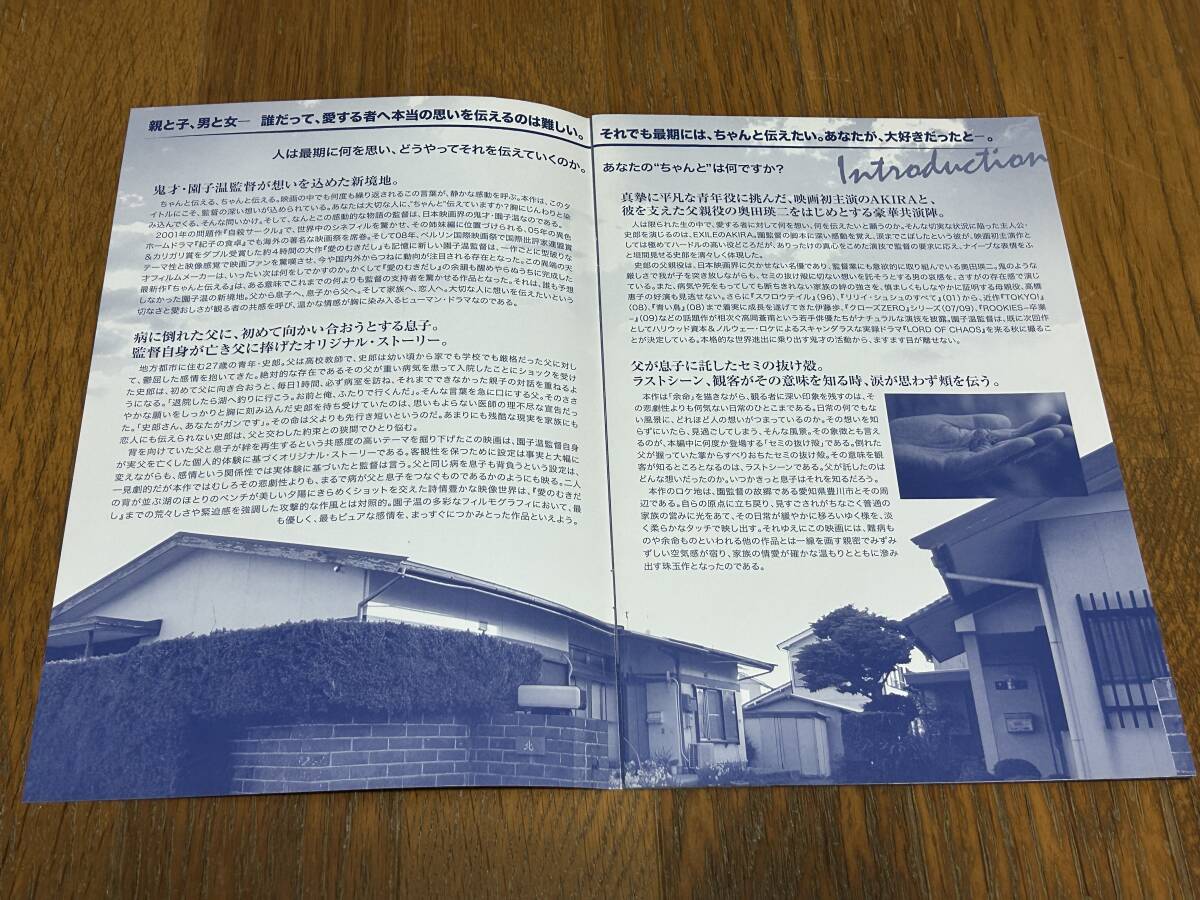 親と子、男と女─ 誰だって、愛する者へ本当の思いを伝えるのは難しい。
人は最期に何を思い、どうやってそれを伝えていくのか。
鬼才・園子温監督が想いを込めた新境地。
ちゃんと伝える、ちゃんと伝える。映画の中でも何度も繰り返されるこの言葉が、静かな感動を呼ぶ。本作は、このタ
イトルにこそ、監督の深い想いが込められている。あなたは大切な人に、“ちゃんと”伝えていますか?胸にじんわりと染
み込んでくる、そんな問いかけ。そして、なんとこの感動的な物語の監督は、日本映画界の鬼才・園子温なのである。
2001年の問題作『自殺サークル』で、世界中のシネフィルを驚かせ、その姉妹編に位置づけられる、05年の異色
ホームドラマ『紀子の食卓』でも海外の著名な映画祭を席巻。そして08年、ベルリン国際映画祭で国際批評家連盟賞
&カリガリ賞をダブル受賞した約4時間の大作『愛のむきだし』も記憶に新しい園子温監督は、一作ごとに型破りな
テーマ性と映像感覚で映画ファンを驚嘆させ、今や国内外からつねに動向が注目される存在となった。この異端の天
オフィルムメーカーは、いったい次は何をしでかすのか。かくして『愛のむきだし』の余韻も醒めやらぬうちに完成した
最新作『ちゃんと伝える』は、ある意味でこれまでの何よりも監督の支持者を驚かせる作品となった。それは、誰も予想
しなかった園子温の新境地。父から息子へ、息子から父へ。そして家族へ、恋人へ。大切な人に想いを伝えたいという
切なさと愛おしさが観る者の共感を呼び、温かな情感が胸に染み入るヒューマン・ドラマなのである。
病に倒れた父に、初めて向かい合おうとする息子。
監督自身が亡き父に捧げたオリジナル・ストーリー。
地方都市に住む27歳の青年・史郎。父は高校教師で、史郎は幼い頃から家でも学校でも厳格だった父に対し
て、鬱屈した感情を抱いてきた。絶対的な存在であるその父が重い病気を患って入院したことにショックを受け
た史郎は、初めて父に向き合おうと、毎日1時間、必ず病室を訪ね、それまでできなかった親子の対話を重ねるよ
うになる。「退院したら湖へ釣りに行こう。お前と俺、ふたりで行くんだ」。そんな言葉を急に口にする父。そのささ
やかな願いをしっかりと胸に刻み込んだ史郎を待ち受けていたのは、思いもよらない医師の理不尽な宣告だっ
た。「史郎さん、あなたがガンです」。その命は父よりも先行き短いというのだ。あまりにも残酷な現実を家族にも
恋人にも伝えられない史郎は、父と交わした約束との狭間でひとり悩む。
背を向けていた父と息子が絆を再生するという共感度の高いテーマを掘り下げたこの映画は、園子温監督自身
が実父を亡くした個人的体験に基づくオリジナル・ストーリーである。客観性を保つために設定は事実と大幅に
変えながらも、感情という関係性では実体験に基づいたと監督は言う。父と同じ病を息子も背負うという設定は、
一見劇的だが本作ではむしろその悲劇性よりも、まるで病が父と息子をつなぐものであるかのようにも映る。二人
の背が並ぶ湖のほとりのベンチが美しい夕陽にきらめくショットを交えた詩情豊かな映像世界は、『愛のむきだ
し』までの荒々しさや緊迫感を強調した攻撃的な作風とは対照的。園子温の多彩なフィルモグラフィにおいて、最
も優しく、最もピュアな感情を、まっすぐにつかみとった作品といえよう。
北
それでも最期には、ちゃんと伝えたい。あなたが、大好きだったと─。
あなたの“ちゃんと”は何ですか?
Introduction
真摯に平凡な青年役に挑んだ、映画初主演のAKIRAと、
彼を支えた父親役の奥田瑛二をはじめとする豪華共演陣。
人は限られた生の中で、愛する者に対して何を想い、何を伝えたいと願うのか。そんな切実な状況に陥った主人公・
史郎を演じるのは、EXILEのAKIRA。園監督の脚本に深い感動を覚え、涙までこぼしたという彼が、映画初主演作と
しては極めてハードルの高い役どころだが、ありったけの真心をこめた演技で監督の要求に応え、ナイーブな表情をふ
と垣間見せる史郎を清々しく体現した。
史郎の父親役は、日本映画界に欠かせない名優であり、監督業にも意欲的に取り組んでいる奥田瑛二。鬼のような
厳しさで我が子を突き放しながらも、セミの抜け殻に切ない想いを託そうとする男の哀感を、さすがの存在感で演じ
ている。また、病気や死をもってしても断ちきれない家族の絆の強さを、慎ましくもしなやかに証明する母親役、高橋
惠子の好演も見逃せない。さらに『スワロウテイル』(96)、『リリイ・シュシュのすべて』(01)から、近作『TOKYO!』
(08)、『青い鳥』(08)まで着実に成長を遂げてきた伊藤歩、『クローズZERO』シリーズ(07/09)、『ROOKIES−卒業
−』(09)などの話題作が相次ぐ高岡蒼甫という若手俳優たちがナチュラルな演技を披露。園子温監督は、既に次回作
としてハリウッド資本&ノルウェー・ロケによるスキャンダラスな実録ドラマ『LORD OF CHAOS』を来る秋に撮るこ
とが決定している。本格的な世界進出に乗り出す鬼才の活動から、ますます目が離せない。
父が息子に託したセミの抜け殻。
ラストシーン、観客がその意味を知る時、涙が思わず頬を伝う。
本作は「余命」を描きながら、観る者に深い印象を残すのは、そ
の悲劇性よりも何気ない日常のひとこまである。日常の何でもな
い風景に、どれほど人の想いがつまっているのか。その想いを知
らずにいたら、見過ごしてしまう、そんな風景。その象徴とも言え
るのが、本編中に何度か登場する「セミの抜け殻」である。倒れた
父が握っていた掌からすべりおちたセミの抜け殻。その意味を観
客が知るところとなるのは、ラストシーンである。父が託したのは
どんな想いだったのか。いつかきっと息子はそれを知るだろう。
本作のロケ地は、園監督の故郷である愛知県豊川市とその周
辺である。自らの原点に立ち戻り、見すごされがちなごく普通の
家族の営みに光をあて、その日常が緩やかに移ろいゆく様を、淡
く柔らかなタッチで映し出す。それゆえにこの映画には、難病も
のや余命ものといわれる他の作品とは一線を画す親密でみずみ
ずしい空気感が宿り、家族の情愛が確かな温もりとともに滲み
出す珠玉作となったのである。